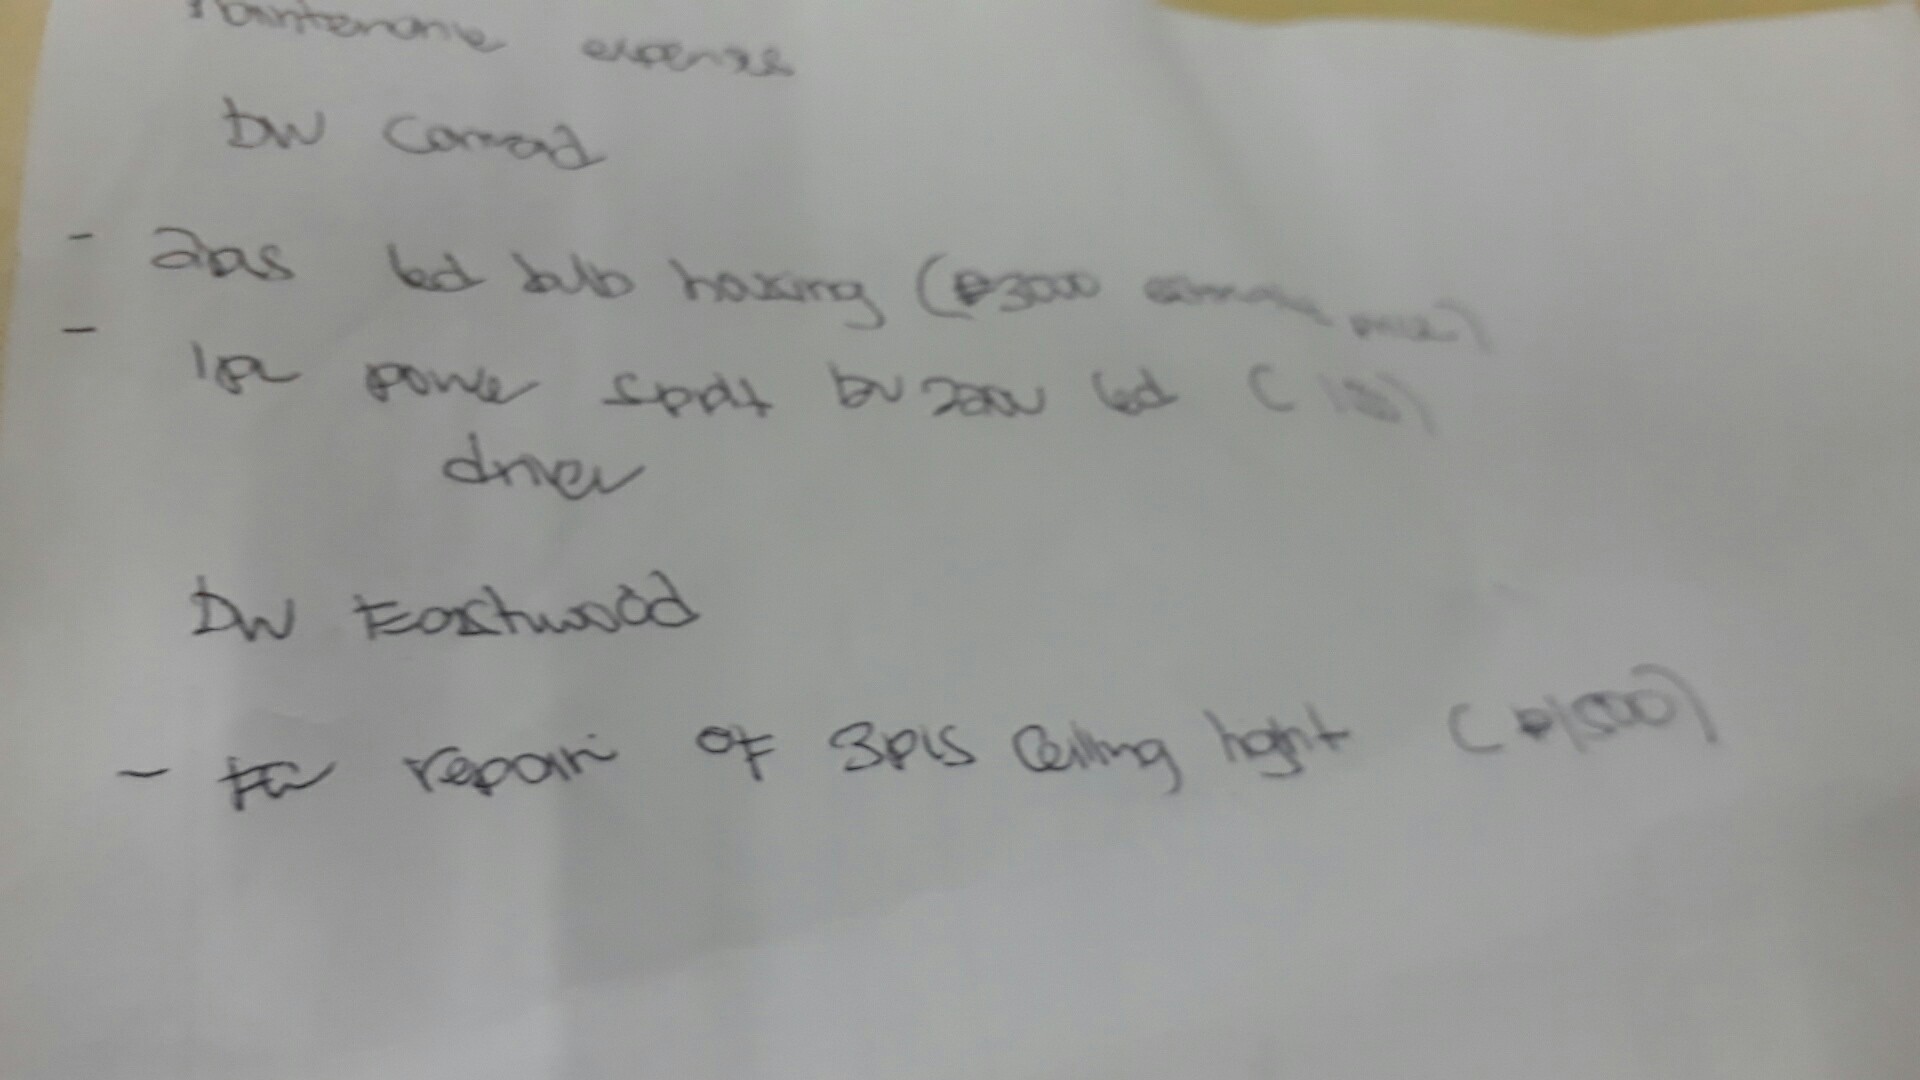 Maintenance expense
DW Conrad
- 2pcs led bulb housing (₱3000
- 1pc power spdt led
driver
DW Eastwood
- for repair of 3pcs Ceiling light (₱1500)